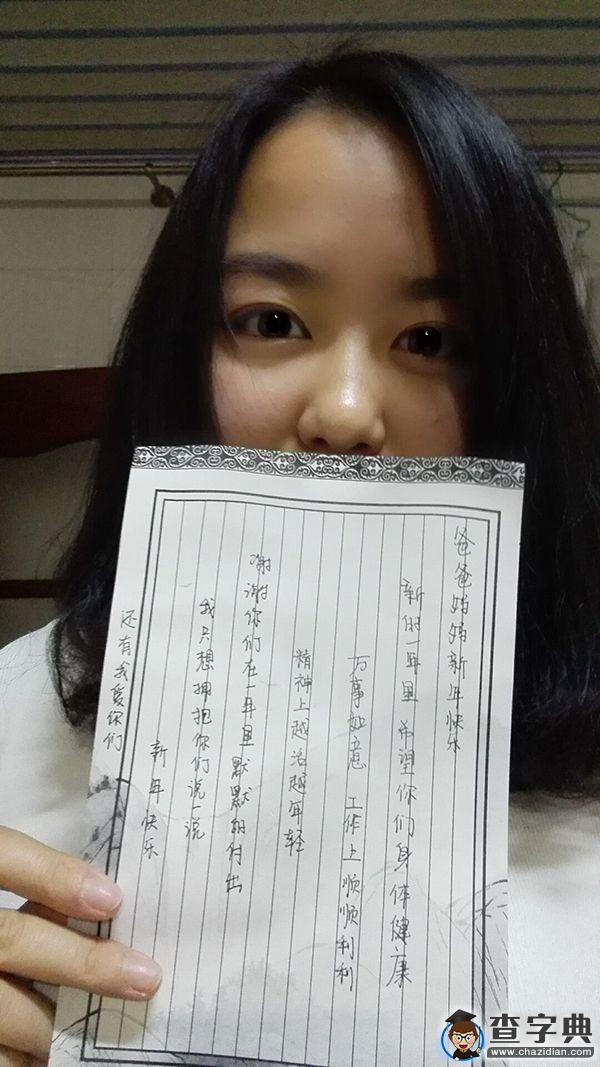 爸爸妈妈新年快乐
新的一年里 希望你们身体健康
万事如意 工作上顺顺利利
精神上越活越年轻
谢谢你们在一年里默默的付出
我只想拥抱你们说一说
新年快乐
还有我爱你们
查字典
www.chazidian.com